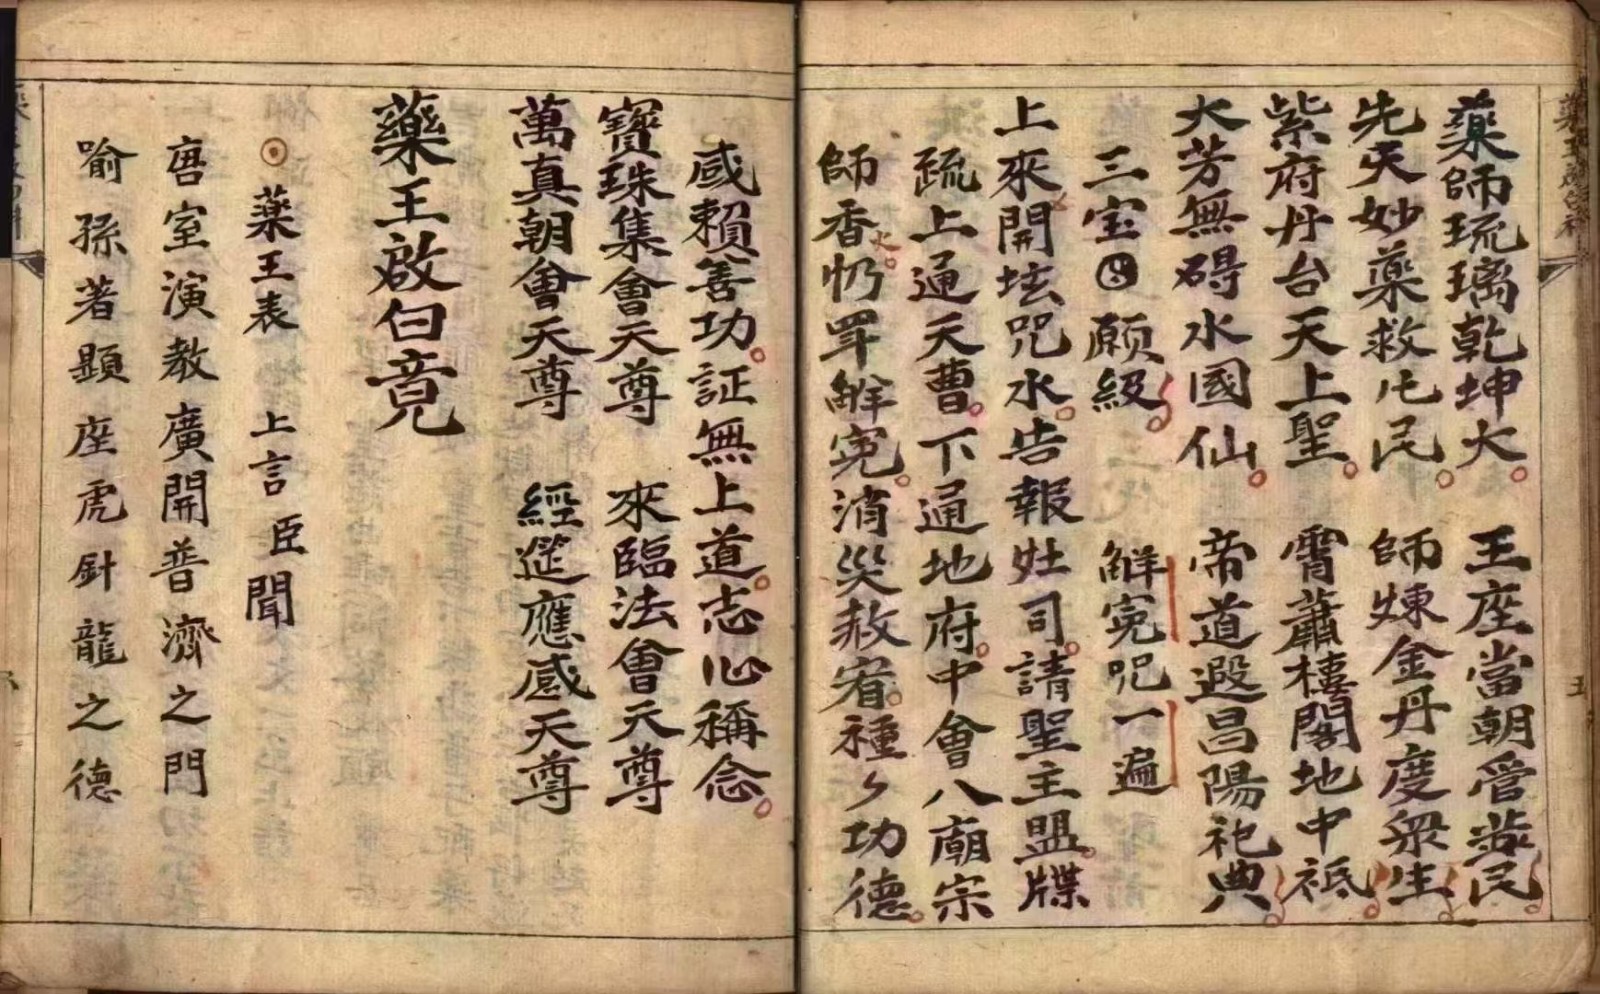 藥師琉璃乾坤大 王座當朝管蒸民
先天妙藥救厇民 師煉金丹度眾生
紫府丹台天上聖 霄蕭樓閣地中祗
大芳無碍水國仙 帝道遐昌陽祀典
三宝 願級 解寃咒一遍
上來開坛咒水告報灶司請聖主盟牒
疏上通天曹下通地府中會八廟宗
師香火仍罕解寃消災赦宥種々功德
咸賴善功証無上道志心稱念
寶珠集會天尊 來臨法會天尊
萬真朝會天尊 經筵應感天尊
藥王啟白竟
藥王表 上言臣聞
唐室演教廣開普濟之門
喻孫著顯座虎針龍之德